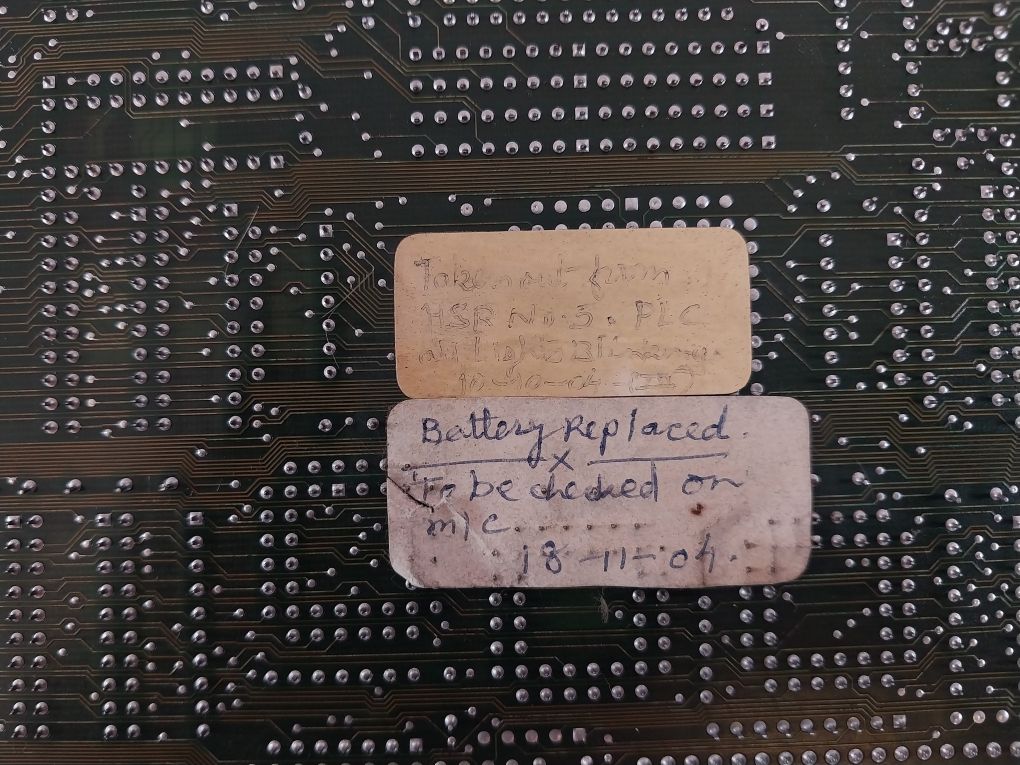 Taken out from
HSR No. 3. PLC
all Lights Blinking.
10-10-04. (III)
Battery Replaced.
x
To be checked on
m/c.......
18-11-04.